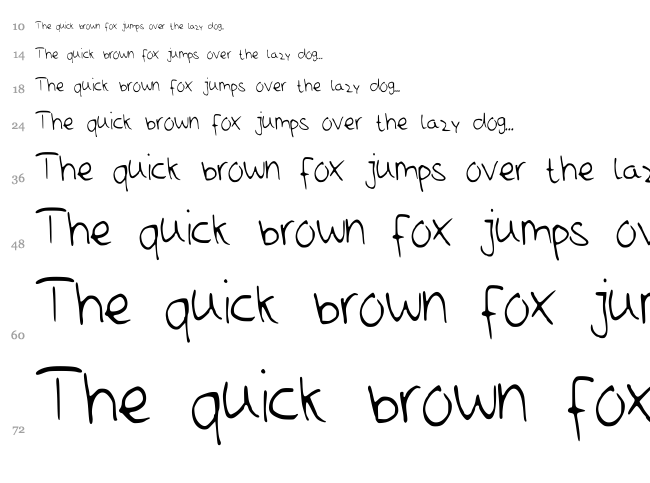 10 The quick brown fox jumps over the lazy dog...
14 The quick brown fox jumps over the lazy dog...
18 The quick brown fox jumps over the lazy dog...
24 The quick brown fox jumps over the lazy dog...
36 The quick brown fox jumps over the laz
48 The quick brown fox jumps ov
60 The quick brown fox jur
72 The quick brown fox